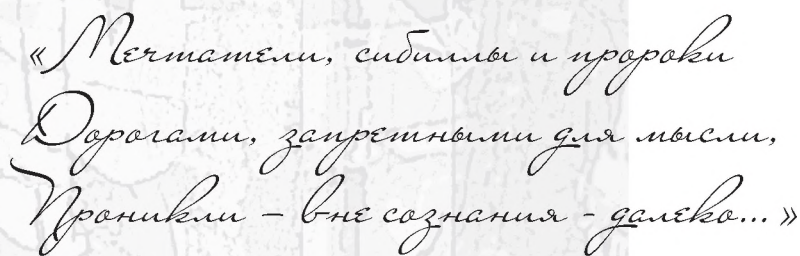 «Мечтатели, сибиллы и пророки
Дорогами, запретными для мысли,
Проникли – вне сознания - далеко... »